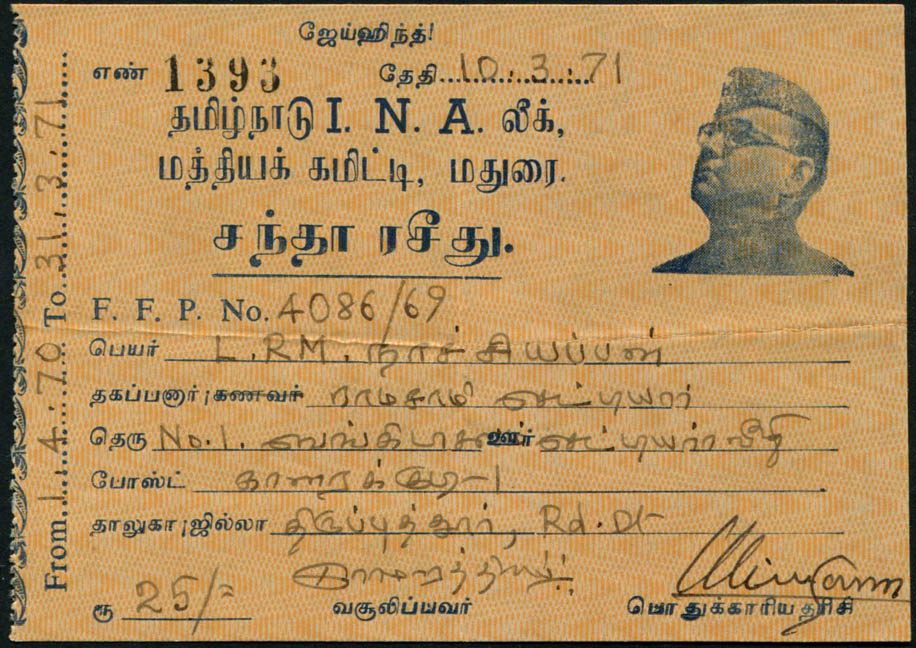 ஜேய்ஹிந்த்!
எண் 1393 தேதி 10.3.71
தமிழ்நாடு I. N. A. லீக்,
மத்தியக் கமிட்டி, மதுரை.
சந்தா ரசீது.
F. F. P. No. 4086/69
பெயர் L.RM. நாச்சியப்பன்
தகப்பனார்/கணவர் ராமசாமி செட்டியார்
தெரு No.1. ஊர் செட்டியார் வீதி
போஸ்ட் காரைக்குடி-1
தாலுகா/ஜில்லா திருப்புத்தூர், Rd. Dt
ரூ 25/- வசூலிப்பவர் பொதுக்காரியதரிசி
From 1.4.70 To 31.3.71